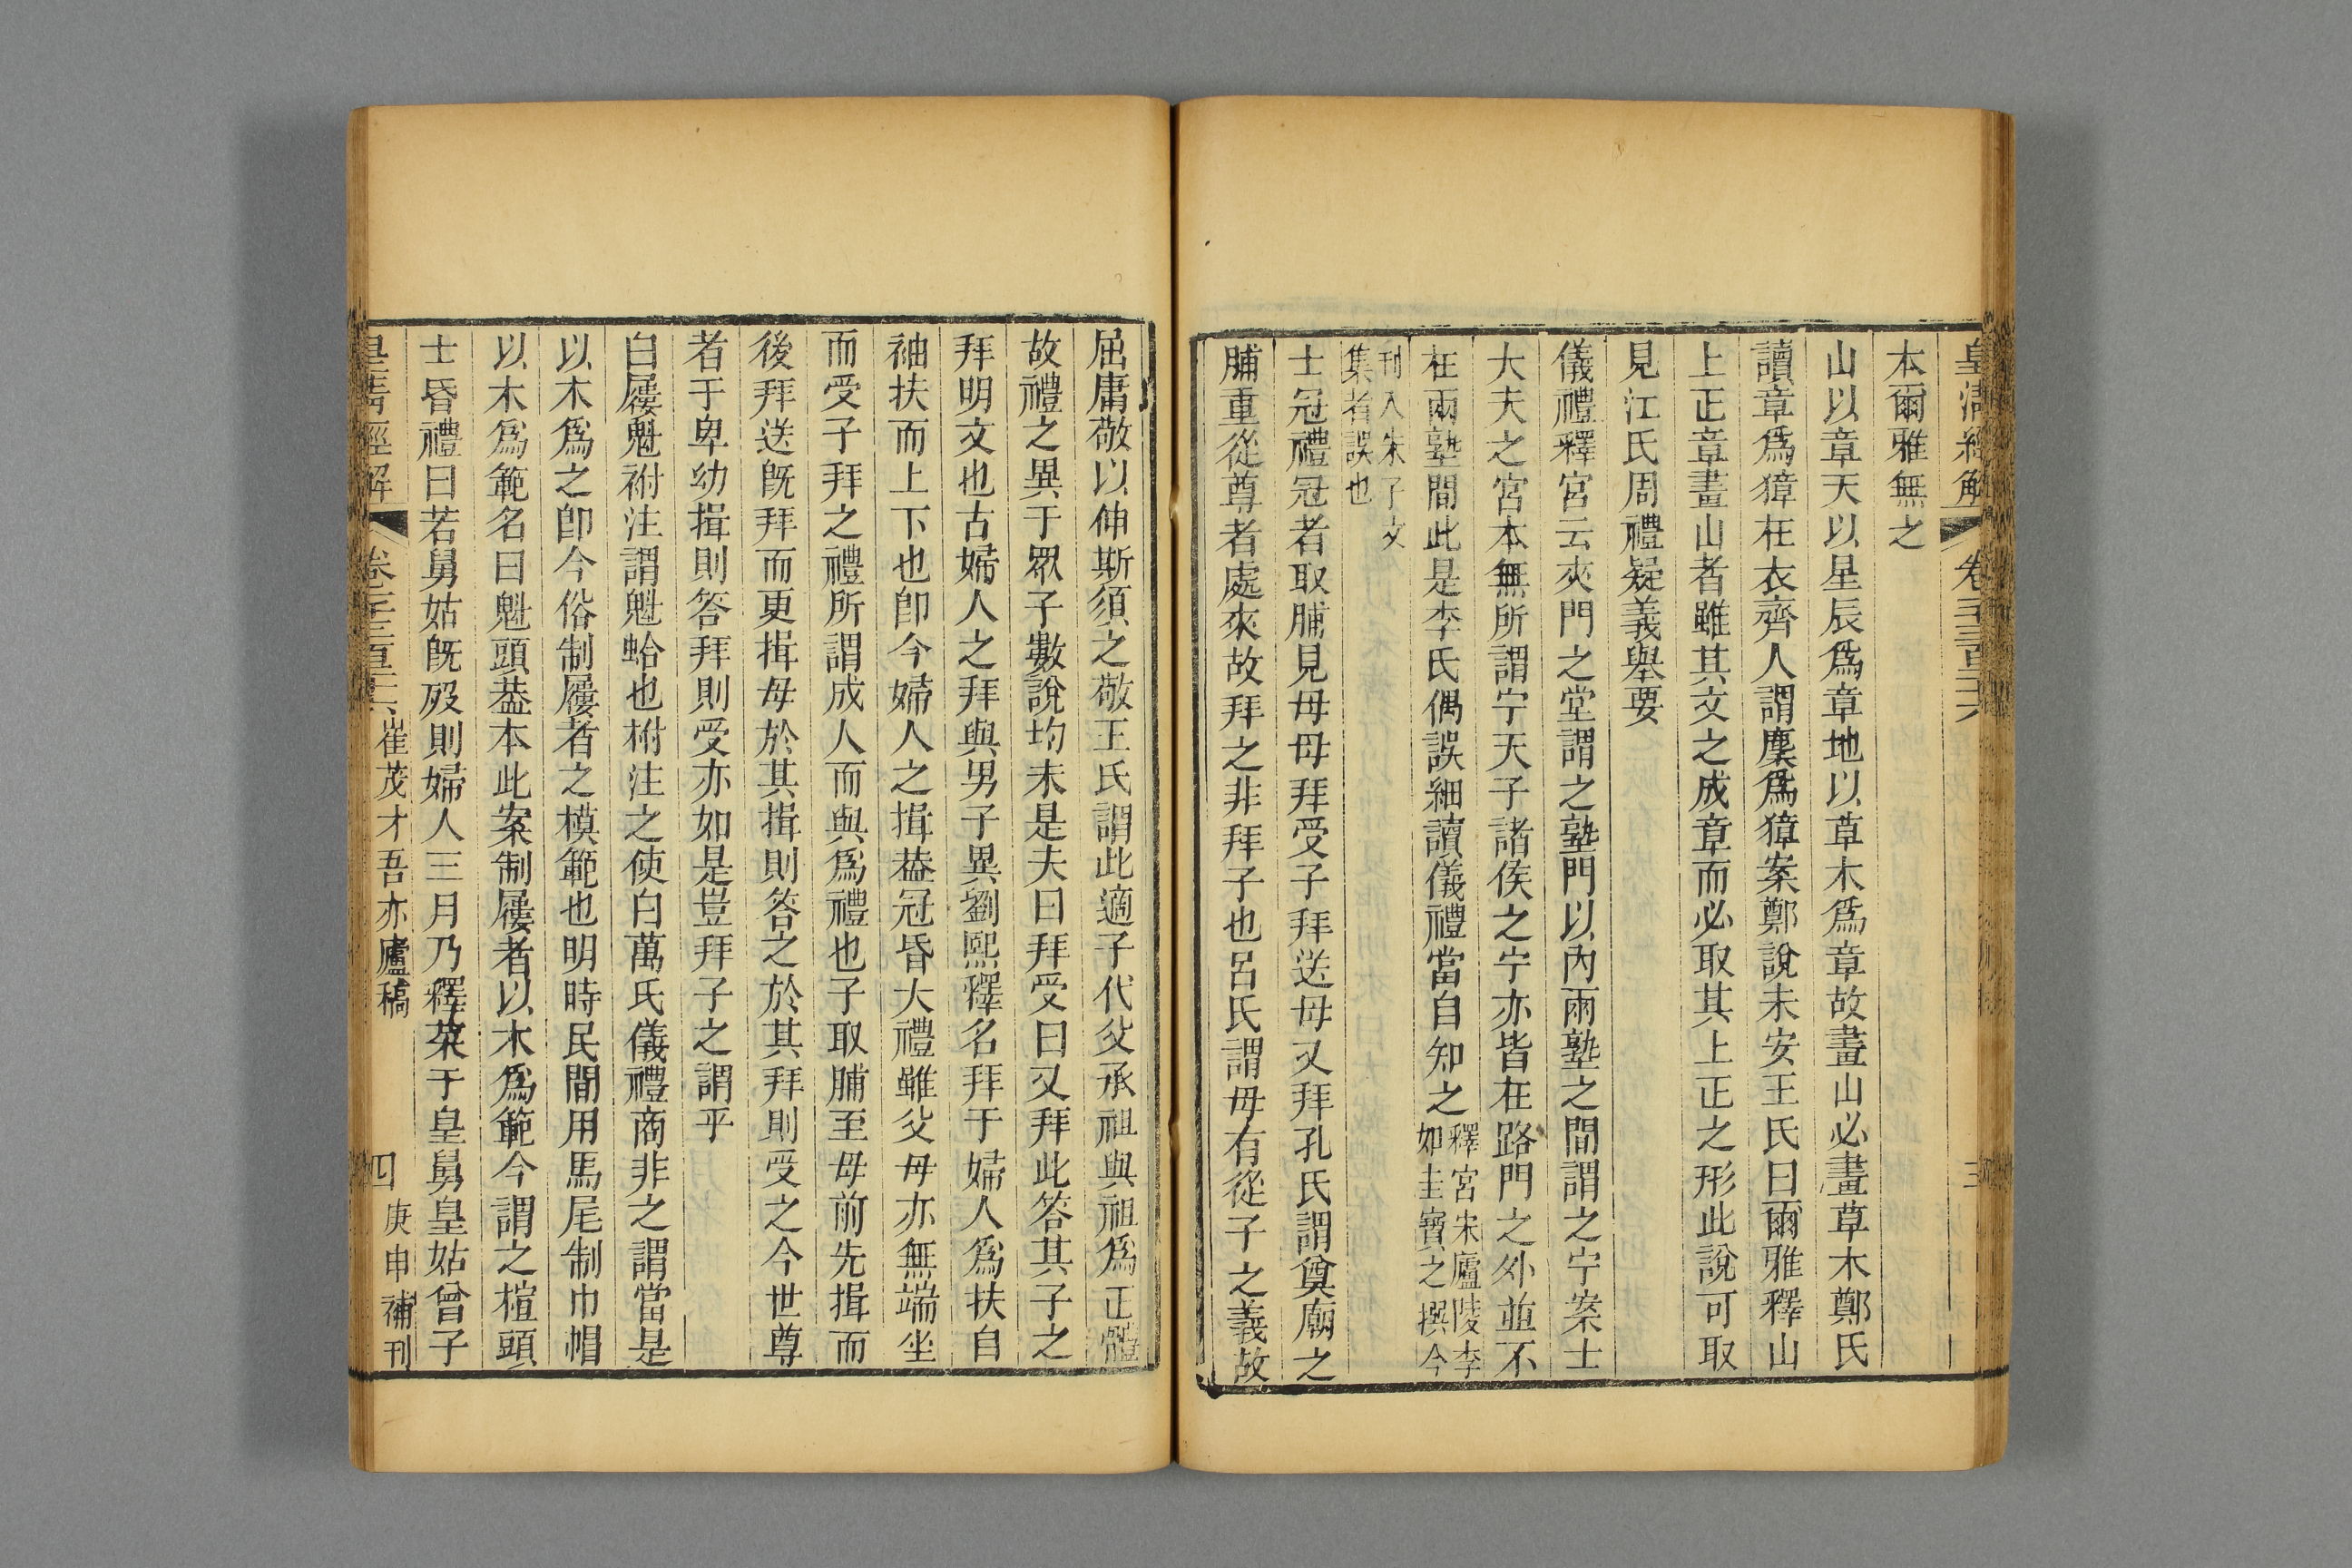 皇清經解 卷 三
本爾雅無之
山以章天以星辰爲章地以草木爲章故畫山必畫草木鄭氏
讀章爲獐在衣齊人謂麇爲獐案鄭說未安王氏曰爾雅釋山
上正章畫山者雖其文之成章而必取其上正之形此說可取
見江氏周禮疑義舉要
儀禮釋宮云夾門之堂謂之塾門以內兩塾之間謂之宁案士
大夫之宮本無所謂宁天子諸侯之宁亦皆在路門之外並不
在兩塾間此是李氏偶誤細讀儀禮當自知之
釋宮宋廬陵李
如圭寶之撰今
刊入朱子文
集者誤也
士冠禮冠者取脯見母母拜受子拜送母又拜孔氏謂奠廟之
脯重從尊者處來故拜之非拜子也呂氏謂母有從子之義故
屈庸敬以伸斯須之敬王氏謂此適子代父承祖與祖爲正體
故禮之異于眾子數說均未是夫曰拜受曰又拜此答其子之
拜明文也古婦人之拜與男子異劉熙釋名拜于婦人爲扶自
袖扶而上下也卽今婦人之揖葢冠昏大禮雖父母亦無端坐
而受子拜之禮所謂成人而與爲禮也子取脯至母前先揖而
後拜送旣拜而更揖母於其揖則答之於其拜則受之今世尊
者于卑幼揖則答拜則受亦如是豈拜子之謂乎
白屨魁柎注謂魁蛤也柎注之使白萬氏儀禮商非之謂當是
以木爲之卽今俗制屨者之模範也明時民間用馬尾制巾帽
以木爲範名曰魁頭葢本此案制屨者以木爲範今謂之楦頭
士昏禮曰若舅姑旣歿則婦人三月乃釋菜于皇舅皇姑曾子
皇清經解 卷 崔茂才吾亦廬稿 四 庚申補刊